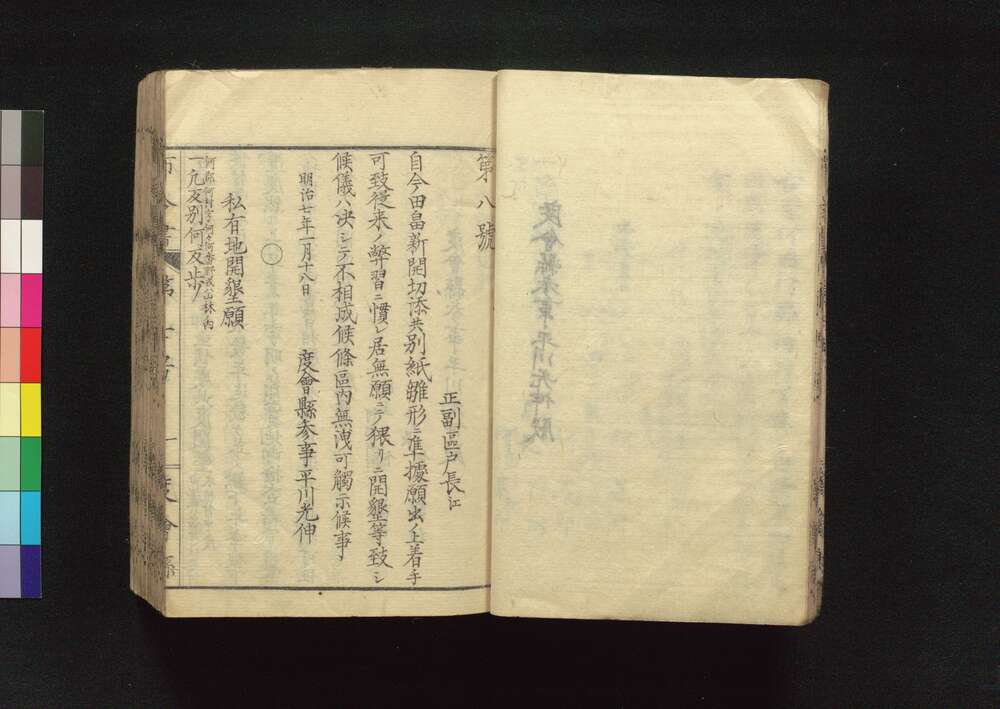 第八號
正副區戸長江
自今田畠新開切添共別紙雛形ニ準據願出ノ上着手
可致從来ノ弊習ニ慣レ居無願ニテ猥リニ開墾等致シ
候儀ハ决シテ不相成候條區内無洩可觸示候事
明治七年一月十八日　度會縣参事平川光伸
私有地開墾願
何郡何村字何々何番野或山林ノ内
一凢反別何反歩